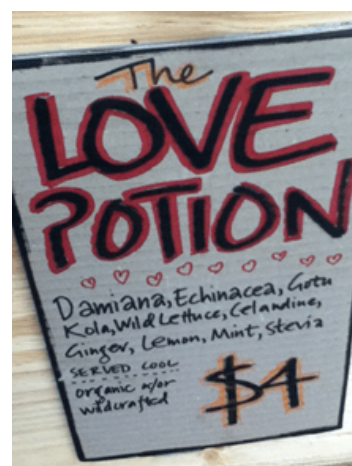 The
LOVE
POTION
Damiana, Echinacea, Gotu
Kola, Wild Lettuce, Celandine,
Ginger, Lemon, Mint, Stevia
SERVED COOL
organic n/or
wildcrafted
$4